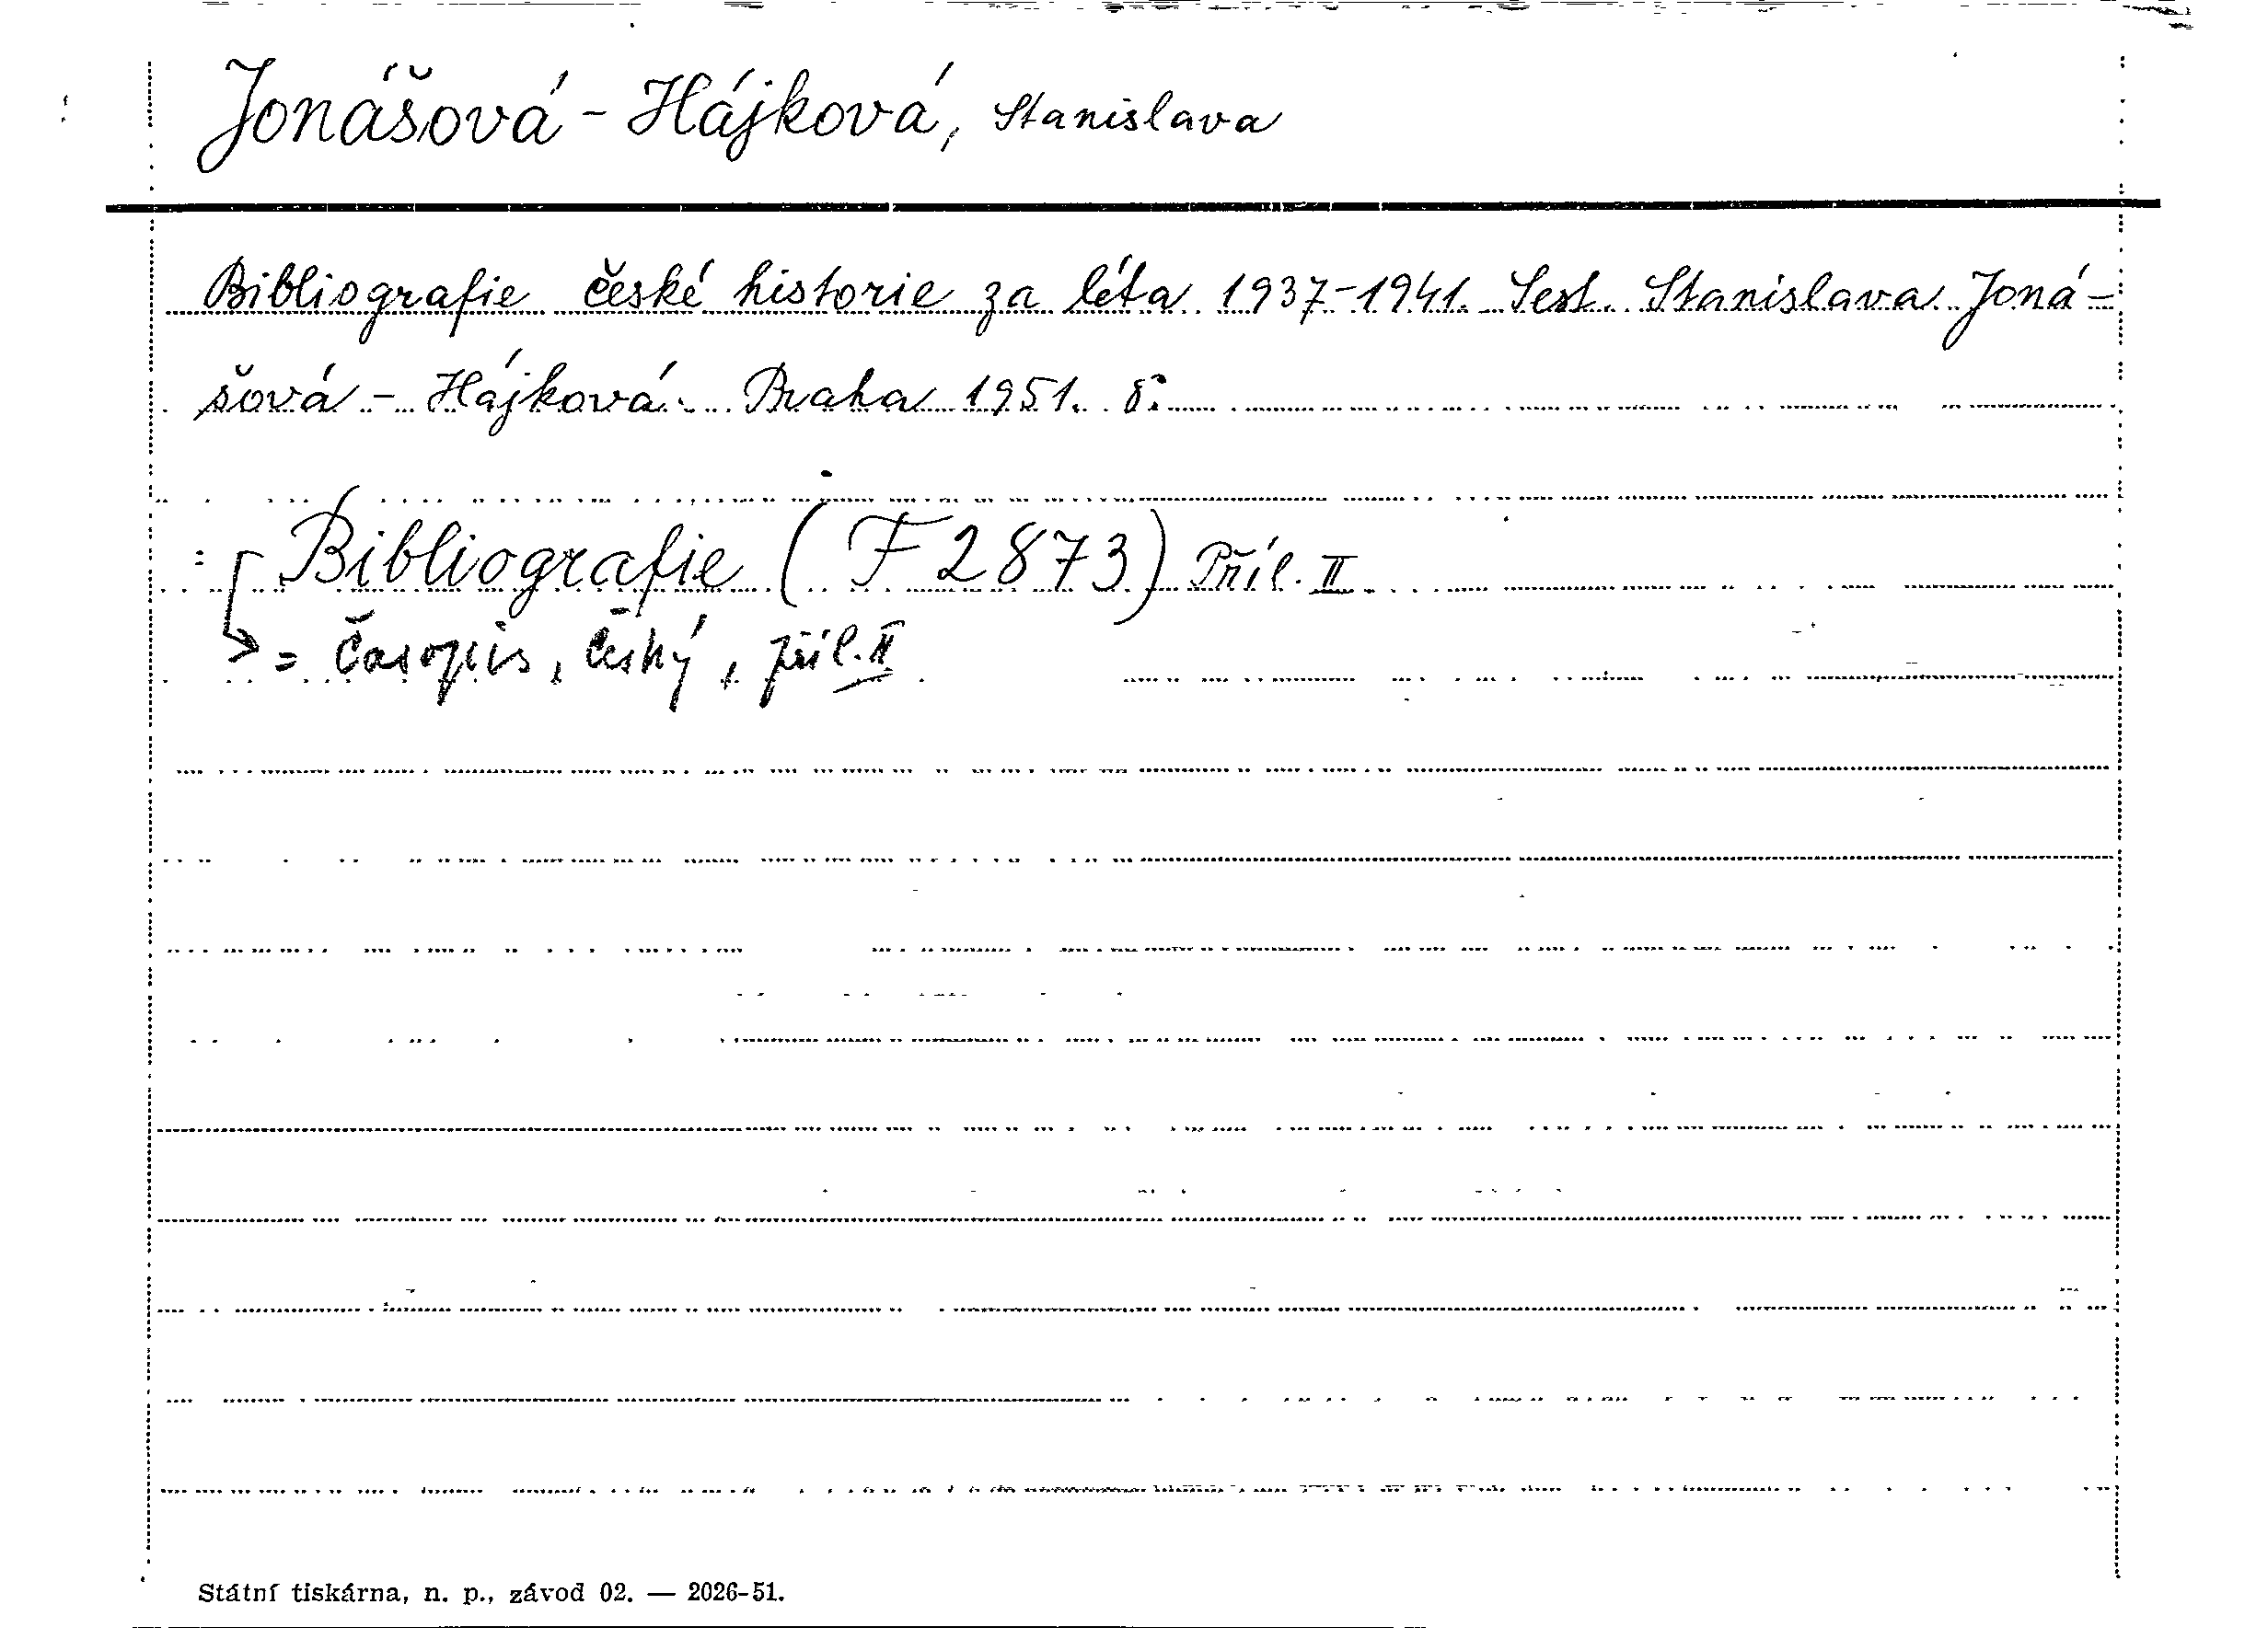 Jonášová - Hájková, Stanislava
Bibliografie české historie za léta 1937-1941. Sest. Stanislava Joná-
šová - Hájková. Praha 1951. 8°.
: Bibliografie (F 2873) Příl. II.
= Časopis, český, příl. II
Státní tiskárna, n. p., závod 02. — 2026-51.